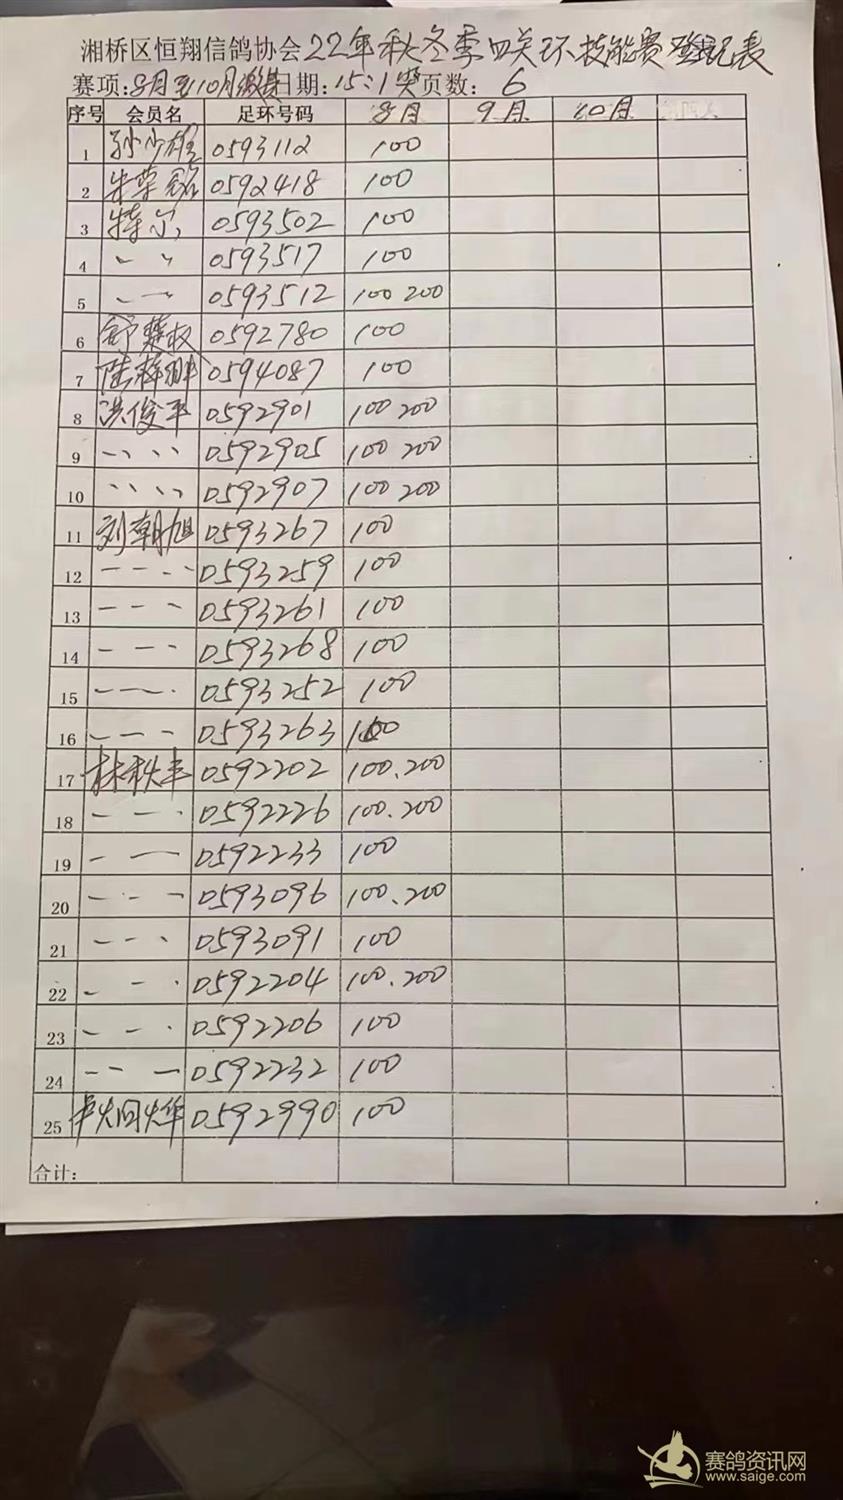 湘桥区恒翔信鸽协会22年秋冬季四关环技能赛登记表
赛项:8月至10月缴费日期:15:1奖页数: 6
序号 会员名 足环号码 8月 9月 10月
1 孙少雄 0593112 100
2 朱荣銘 0592418 100
3 特尔 0593502 100
4 〃 〃 0593517 100
5 〃 — 0593512 100 200
6 舒楚权 0592780 100
7 陆梓翀 0594087 100
8 洪俊平 0592901 100 200
9 〃 〃 〃 0592905 100 200
10 〃 〃 〃 0592907 100 200
11 刘朝旭 0593267 100
12 — — — 0593259 100
13 — — — 0593261 100
14 — — — 0593268 100
15 — — — 0593252 100
16 — — — 0593263 100
17 林秋丰 0592202 100.200
18 — — — 0592226 100.200
19 — — 0592233 100
20 — — — 0593096 100.200
21 — — — 0593091 100
22 — — — 0592204 100.200
23 — — — 0592206 100
24 — — — 0592232 100
25 卢炯烨 0592990 100
合计:
赛鸽资讯网
www.saige.com